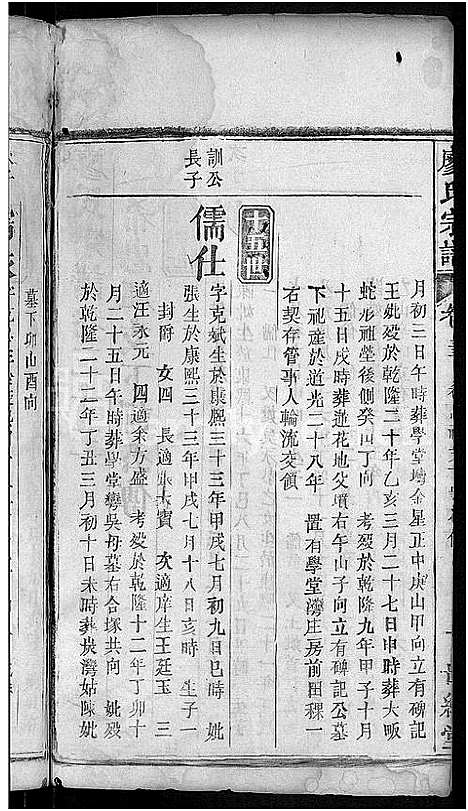 廖氏宗譜
卷三
月初三日午時葬學堂塆金星正中庚山甲向立有碑記
王妣歿於乾隆二十年乙亥三月二十七日申時葬大畈
蛇形祖塋後側癸山丁向 考歿於乾隆九年甲子十月
十五日戌時葬蓮花地父墳右午山子向立有碑記公墓
下祀產於道光二十八年 置有學堂塆庄房前田稞一
石契存管事人輪流交領
十五世
訓公長子
儒仕
字克斌生於康熙三十三年甲戌七月初九日巳時 妣
張生於康熙三十三年甲戌七月十八日亥時 生子一
封爵 女四 長適張大賓 次適庠生王廷玉 三
適汪永元 四適余方盛 考歿於乾隆十二年丁卯十
月二十五日午時葬學堂灣吳母墓右合塚共向 妣歿
於乾隆二十二年丁丑三月初十日未時葬塝灣姑陳妣
墓下卯山酉向